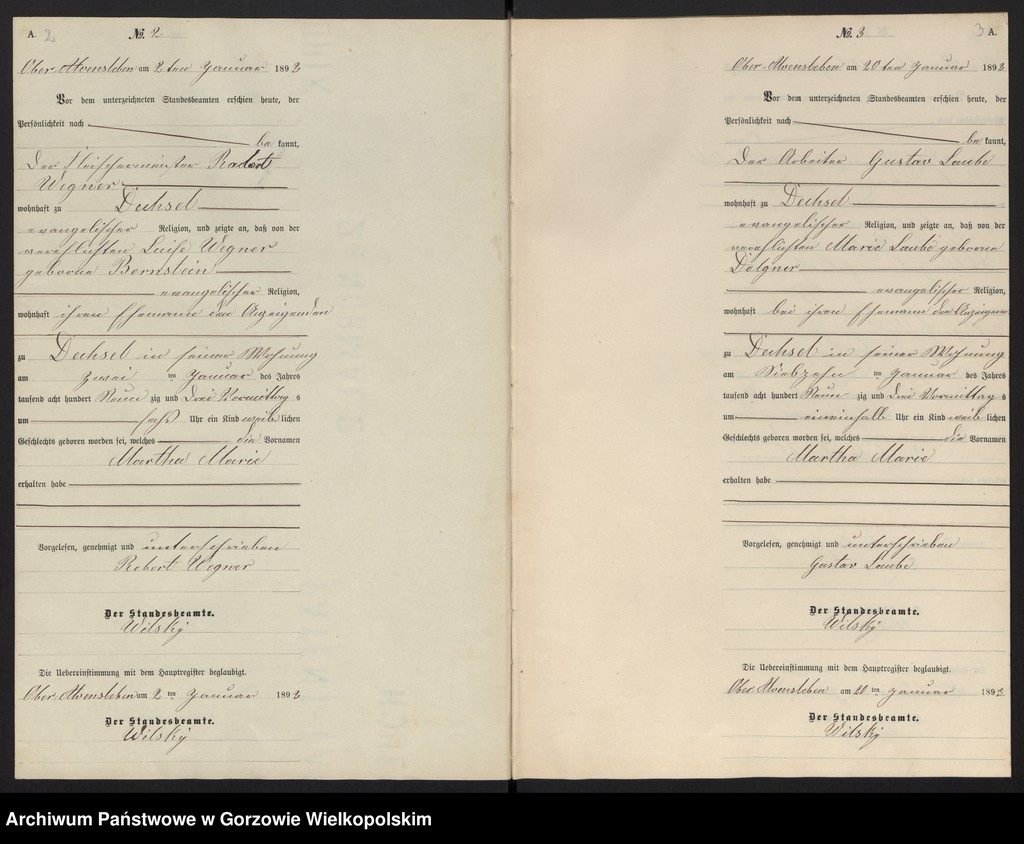 A. 2 № 2
Ober-Alvensleben am 2 ten Januar 1893
Vor dem unterzeichneten Standesbeamten erschien heute, der
Persönlichkeit nach
be kannt,
der Fleischermeister Robert
Wegner
wohnhaft zu Dechsel
evangelischer Religion, und zeigte an, daß von der
verehlichten Luise Wegner
geborne Bernstein
evangelischer Religion,
wohnhaft ihren Ehemann den Anzeigenden
zu Dechsel in seiner Wohnung
am zwei ten Januar des Jahres
tausend acht hundert Neun zig und Drei Vormittag s
um sechs Uhr ein Kind weib lichen
Geschlechts geboren worden sei, welches die Vornamen
Martha Marie
erhalten habe
Vorgelesen, genehmigt und unterschrieben
Robert Wegner
Der Standesbeamte.
Wilsky
Die Uebereinstimmung mit dem Hauptregister beglaubigt.
Ober-Alvensleben am 2 ten Januar 1893
Der Standesbeamte.
Wilsky
№ 3 3 A.
Ober-Alvensleben am 20 ten Januar 1893
Vor dem unterzeichneten Standesbeamten erschien heute, der
Persönlichkeit nach
be kannt,
der Arbeiter Gustav Laube
wohnhaft zu Dechsel
evangelischer Religion, und zeigte an, daß von der
verehlichten Marie Laube geborne
Dolgner
evangelischer Religion,
wohnhaft bei ihren Ehemann den Anzeigenden
zu Dechsel in seiner Wohnung
am Siebzehn ten Januar des Jahres
tausend acht hundert Neun zig und Drei Vormittag s
um eineinhalb Uhr ein Kind weib lichen
Geschlechts geboren worden sei, welches die Vornamen
Martha Marie
erhalten habe
Vorgelesen, genehmigt und unterschrieben
Gustav Laube
Der Standesbeamte.
Wilsky
Die Uebereinstimmung mit dem Hauptregister beglaubigt.
Ober-Alvensleben am 20 ten Januar 1893
Der Standesbeamte.
Wilsky
Archiwum Państwowe w Gorzowie Wielkopolskim